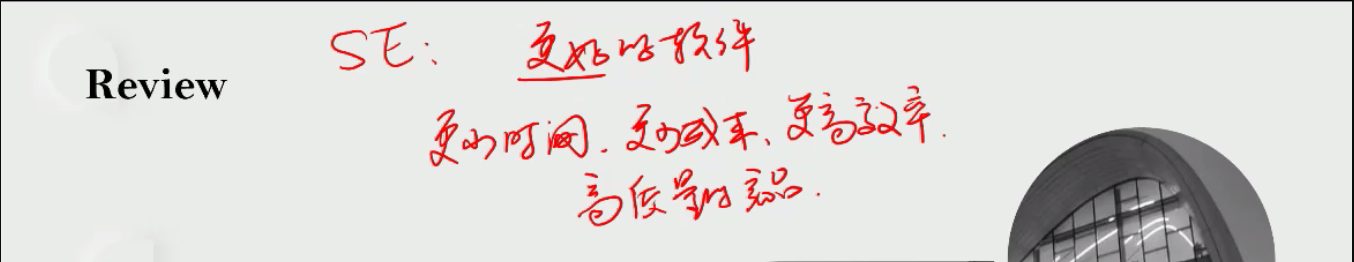 Review
SE: 更好的软件
更少时间、更少成本、更高效率.
高质量的产品.